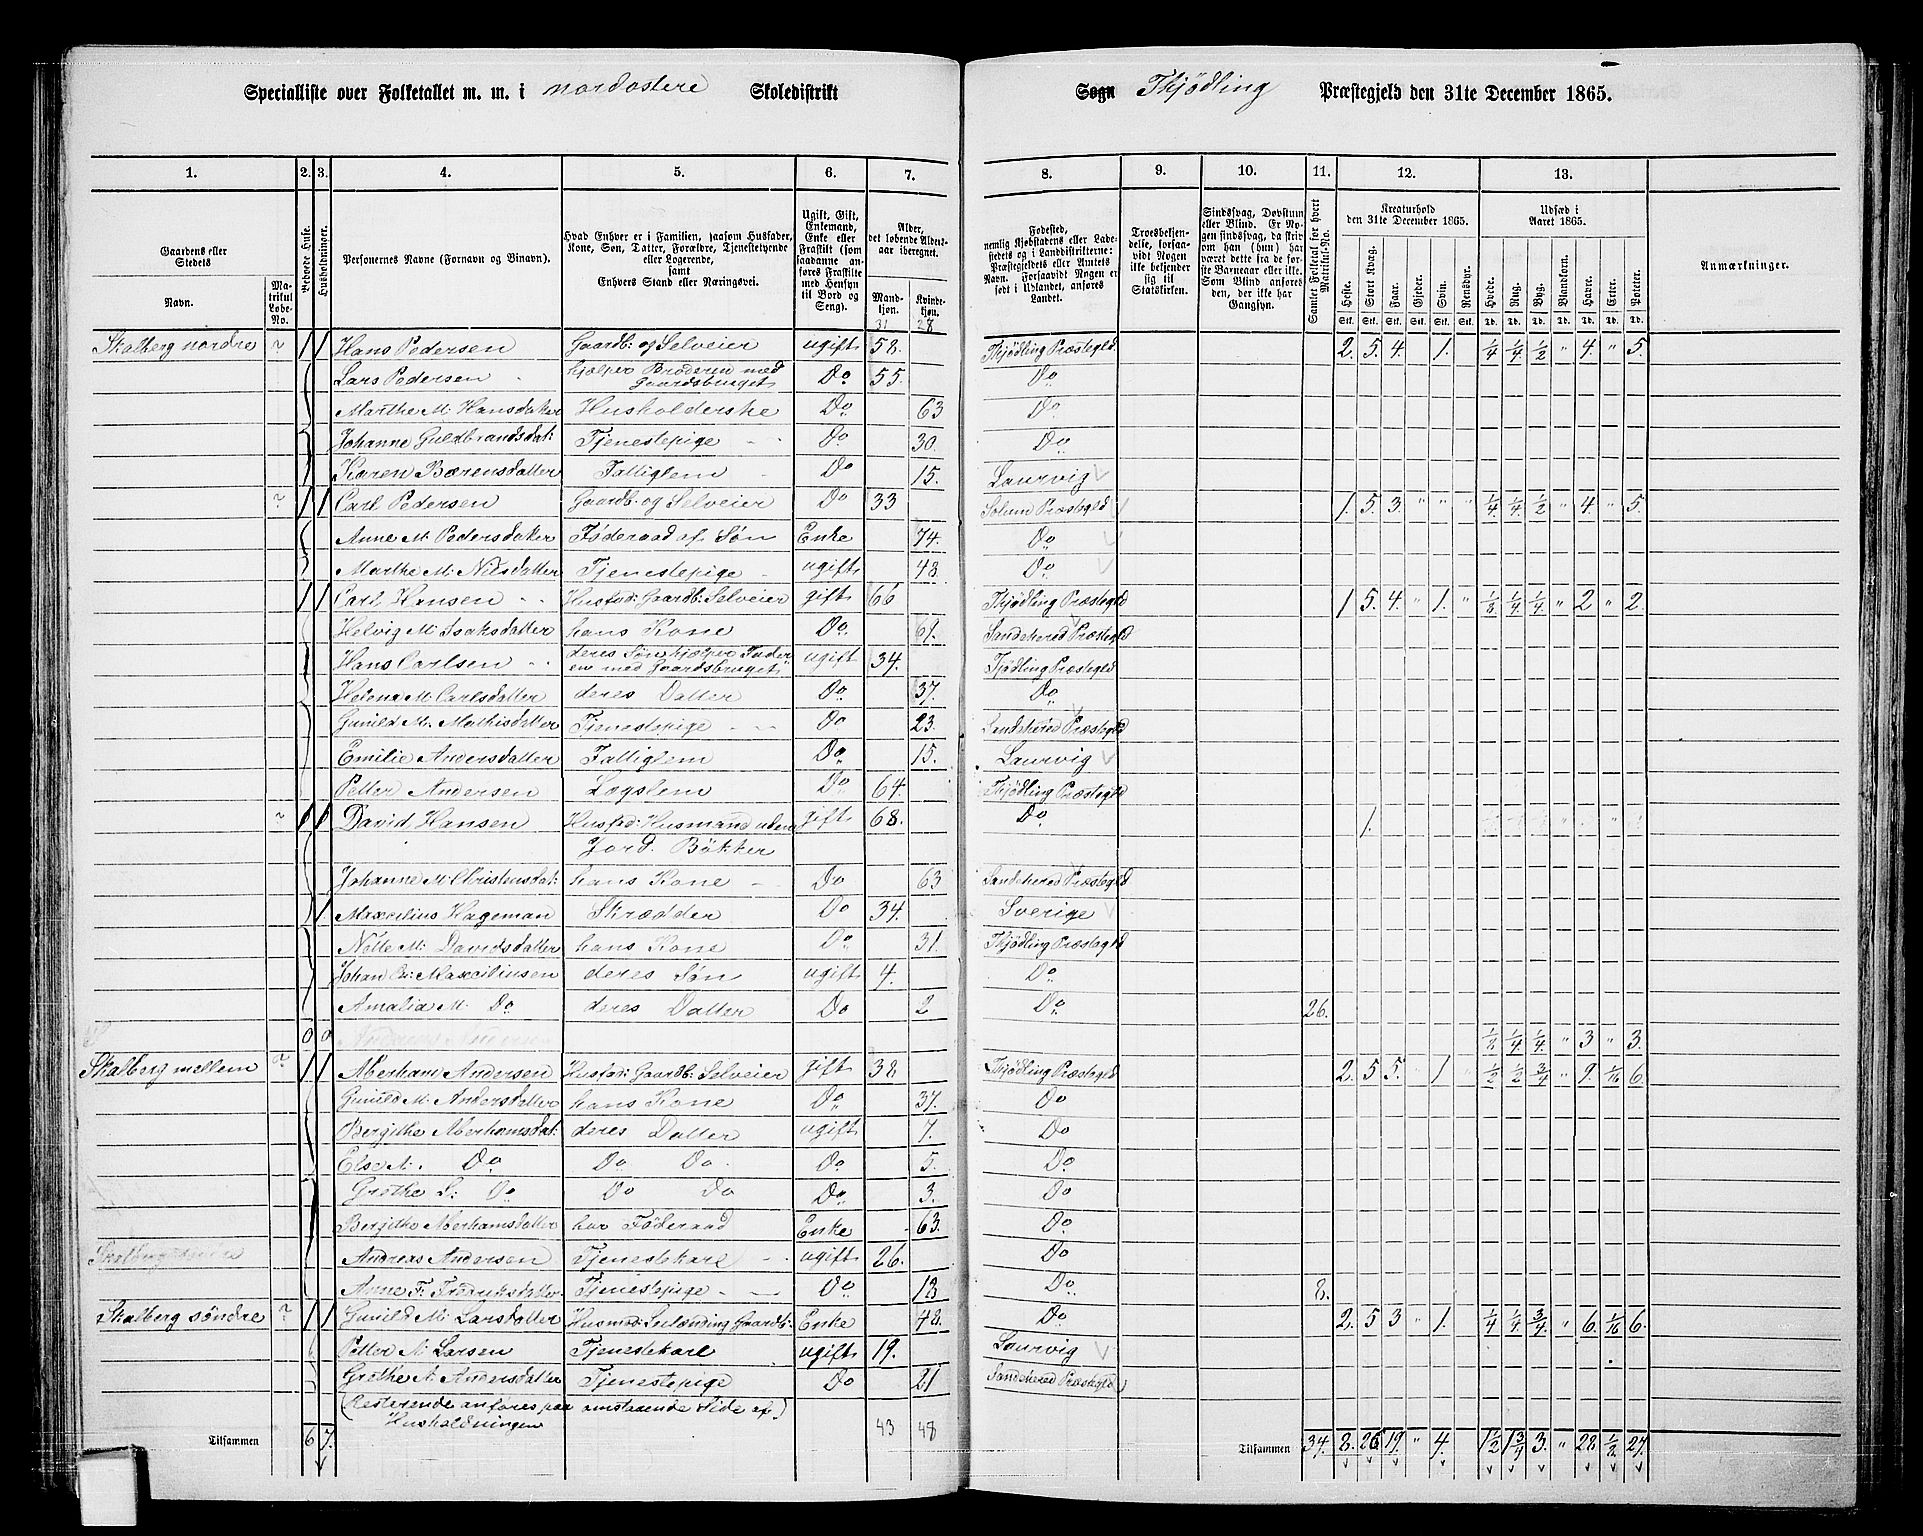 Specialliste over Folketallet m. m. i nordostere Skoledistrikt Sogn Thjødling Præstegjeld den 31te December 1865.
1. 2. 3. 4. 5. 6. 7. 8. 9. 10. 11. 12. 13.
Gaardens eller Stedets
Navn.
Matrikul Løbe-No.
Beboede Huse.
Husholdninger.
Personernes Navne (Fornavn og Binavn).
Hvad Enhver er i Familien, saasom Husfader, Kone, Søn, Datter, Forældre, Tjenestetyende eller Logerende, samt Enhvers Stand eller Næringsvei.
Ugift, Gift, Enkemand, Enke eller Fraskilt (saasom saadanne anføres Fraskilte med Hensyn til Bord og Seng).
Alder, det løbende Aldersaar iberegnet.
Mandkjøn. Kvindekjøn.
31 28
Fødested, nemlig Kjøbstadens eller Ladestedets og i Landdistrikterne: Præstegjeldets eller Amtets Navn. Forsaavidt Nogen er født i Udlandet, anføres Landet.
Troesbekjendelse, forsaavidt Nogen ikke bekjender sig til Statskirken.
Sindssvag, Døvstum eller Blind. Er Nogen sindssvag, da skrives om han (hun) har været dette fra de første Barneaar eller ikke. Som Blind anføres den, der ikke har Gangsyn.
Samlet Folketal for hvert Matrikul-No.
Kreaturhold den 31te December 1865.
Heste. Stort Kvæg. Faar. Gjeder. Svin. Rensdyr.
Udsæd i Aaret 1865.
Hvede. Rug. Byg. Blandkorn. Havre. Erter. Poteter.
Anmærkninger.
Skalberg nordre ? 1 1 Hans Pedersen Gaardb: og Selveier ugift 58. Thjødling Præstegld 2. 5. 4. 1. 1/4 1/4 1/2 " 4. " 5.
Lars Pedersen hjælper Broderen med Gaardsbruget Do 55. Do
Marthe M: Hansdatter Husholderske Do 63 Do
Johanne Guldbrandsdat: Tjenestepige Do 30. Do
Karen Bærensdatter Fattiglem Do 15. Laurvig
? 1 1 Carl Pedersen Gaardb: og Selveier Do 33 Solum Præstegld 1. 5. 3. " " " 1/4 1/4 1/2 " 4. " 5.
Anne M: Pedersdatter Føderaad af Søn Enke 74. Do
Marthe M: Nilsdatter Tjenestepige ugift 48. Do
1 1 Carl Hansen Husfad: Gaardb: Selveier gift 66 Thjødling Præstegld 1 5. 4. " 1. " 1/8 1/4 1/4 " 2 " 2.
Helvig M: Isaksdatter hans Kone Do. 61. Sandehered Præstegld
Hans Carlsen deres Søn hjælper Faderen med Gaardsbruget ugift 34. Tjødling Præstegld
Helena M: Carlsdatter deres Datter Do 37. Do
Gunild M: Mathisdatter Tjenestepige Do 23. Sandehered Præstegld
Emilie Andersdatter Fattiglem Do 15. Laurvig
Petter Andersen Lægslem Do 64. Thjødling Præstegld
? 1 1 David Hansen Husfad: Husmand uden Jord. Bøkker gift 68. Do 1.
Johanne M: Christensdat: hans Kone Do 63 Sandehered Præstegld
1. Maxcilius Hageman Skrædder Do 34. Sverige
Nølle M: Davidsdatter hans Kone Do 31. Thjødling Præstegld
Johan Ch: Maxciliusen deres Søn ugift 4. Do
Amalia M: Do deres Datter Do 2 Do 26.
0 0 1/8 1/4 1/4 " 3 " 3.
Skalberg mellem ? 1 1 Aberham Andersen Husfad: Gaardb: Selveier gift 38 Thjødling Præstegld 2. 5 5. " 1 " 1/2 1/2 3/4 " 9. 1/16 6.
Gunild M: Andersdatter hans Kone Do 37. Do
Bergithe Aberhamsdat: deres Datter ugift 7. Do
Else A. Do Do Do Do 5. Do
Grethe S: Do Do Do Do 3. Do
Bergithe Aberhamsdatter har Føderaad Enke 63. Do
Skalberg søndre Andreas Andersen Tjenestekarl ugift 26. Do
Anne F: Fredriksdatter Tjenestepige Do 18 Do 8.
Skalberg søndre ? 1 1 Gunild M: Larsdatter Husmod: Selvending Gaardb: Enke 48. Do 2. 5 3 " 1. " 1/4 1/4 3/4 " 6. 1/16 6.
Petter A: Larsen Tjenestekarl ugift 19. Laurvig
Grethe A: Andersdatter Tjenestepige Do 21 Sandehered Præstegld
(Resterende anføres paa omstaaende Side af Husholdningen)
43 48
Tilsammen 6 7. Tilsammen 34. 8. 26 19. " 4. " 1 1/2 1 3/4 3. " 28 1/8 27.